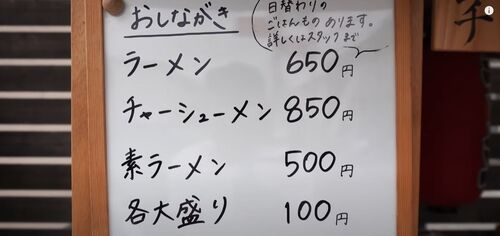 おしながき
日替わりの
ごはんもの あります。
詳しくはスタッフまで
ラーメン 650円
チャーシューメン 850円
素ラーメン 500円
各大盛り 100円
チ